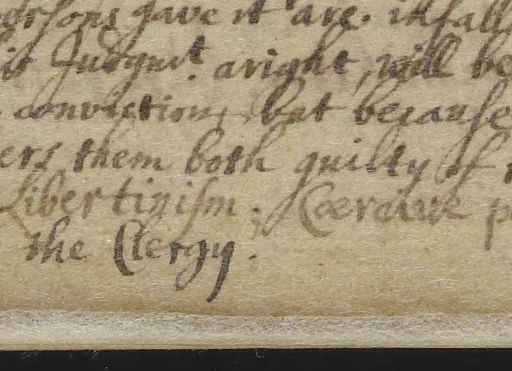 ersons gave it are. infall
is Judgmt. aright, will be
convictions, but because
ers them both guilty of
Libertinism. Coercive p
the Clergy.